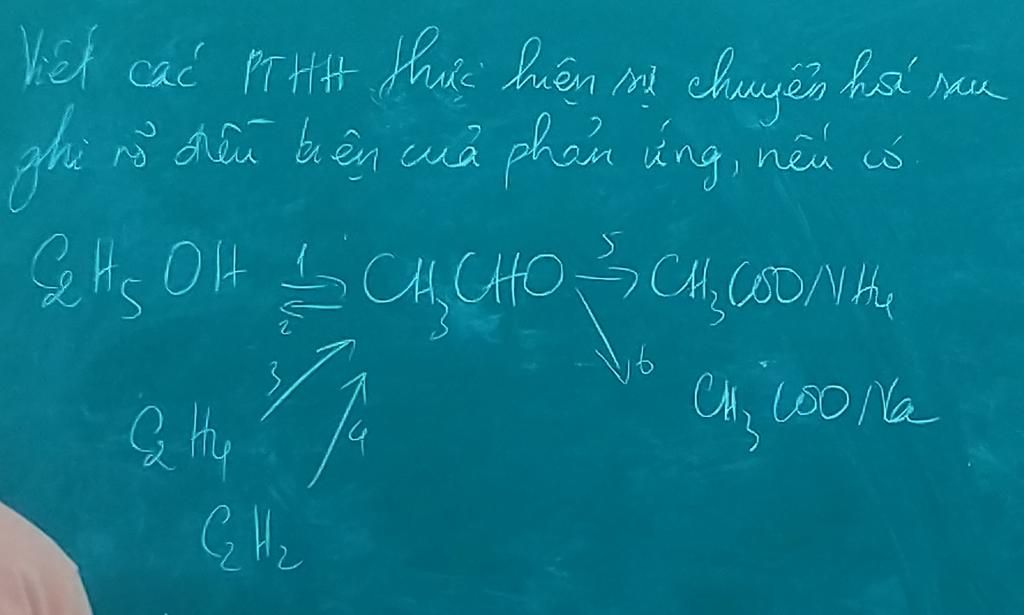 Viết các PTHH thực hiện sự chuyển hoá sau
ghi rõ điều kiện của phản ứng, nếu có.
C2H5OH 1 ⇌ 2 CH3CHO 5 → CH3COONH4
3 4 6
C2H4 CH3COONa
C2H2